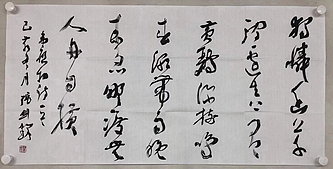 獨憐幽草
澗邊生上有
黃鸝深樹鳴
春潮帶雨晚
來急野渡無
人舟自橫
韋應物詩一首
己亥年月